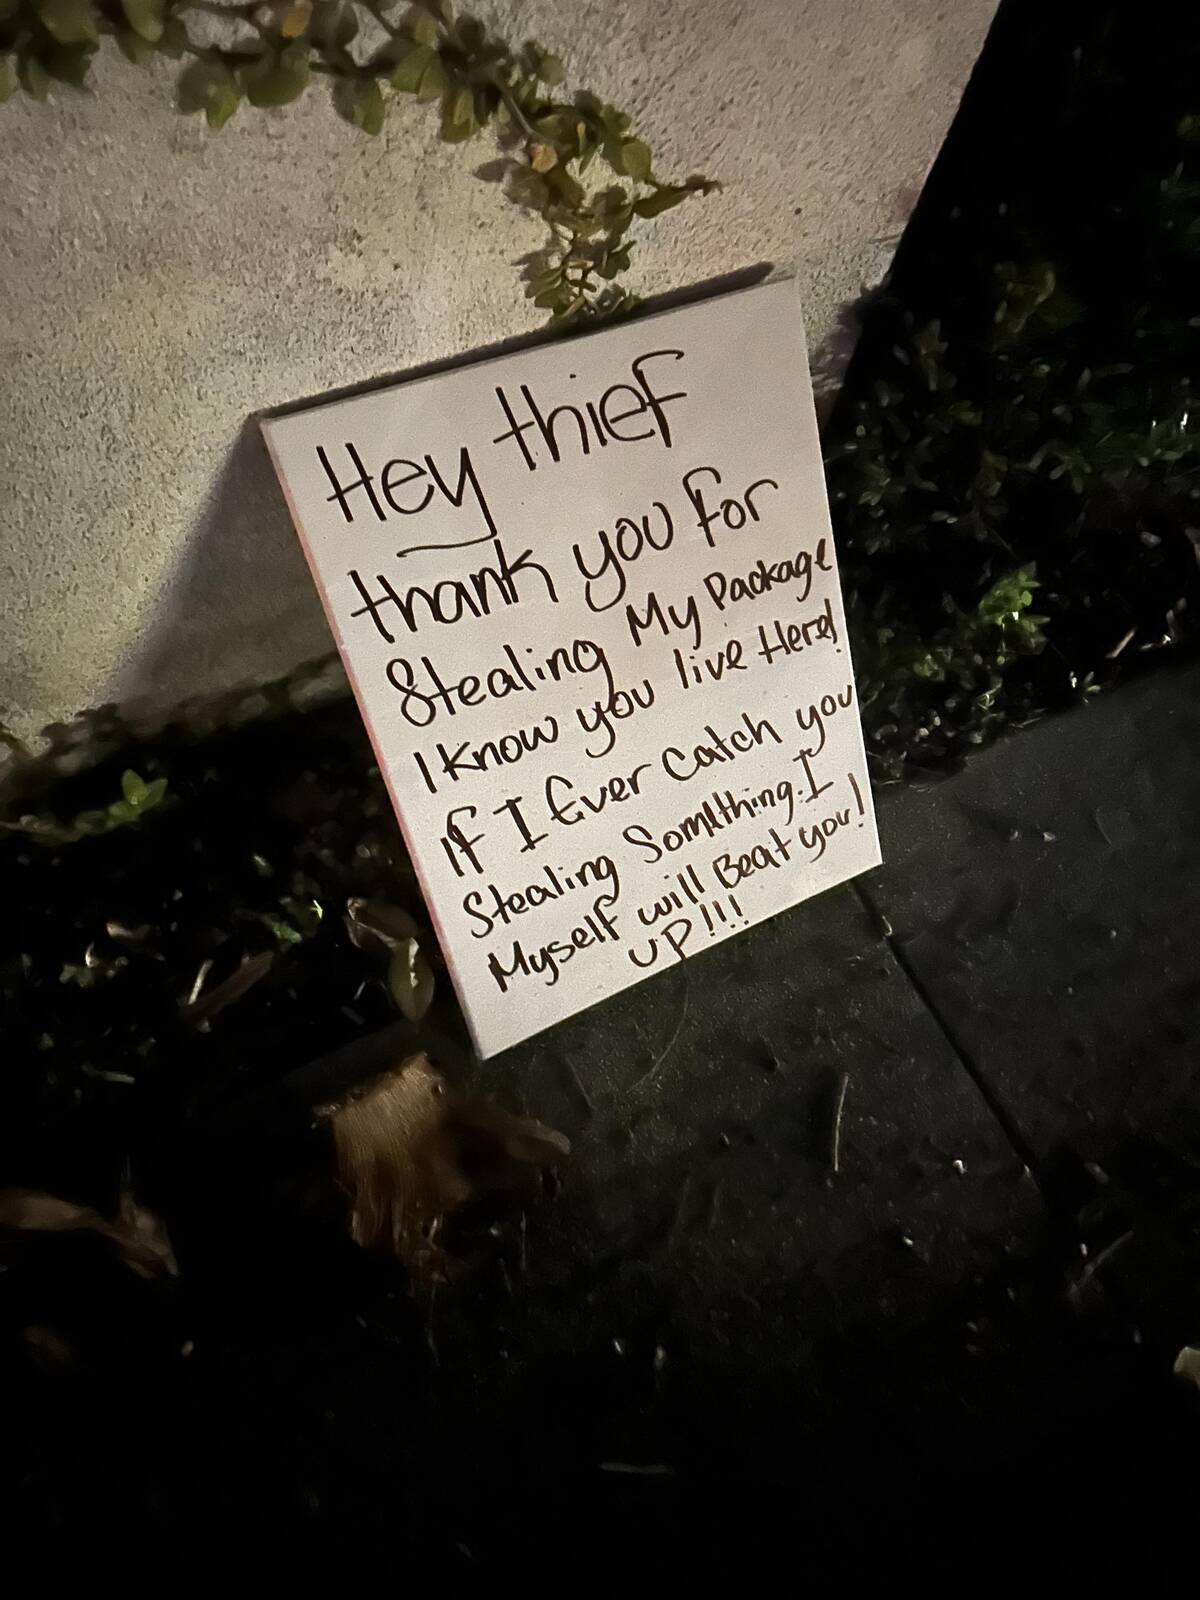 Hey thief
thank you for
Stealing My Package
I know you live Here!
If I Ever Catch you
Stealing Something. I
Myself will Beat you!
UP!!!